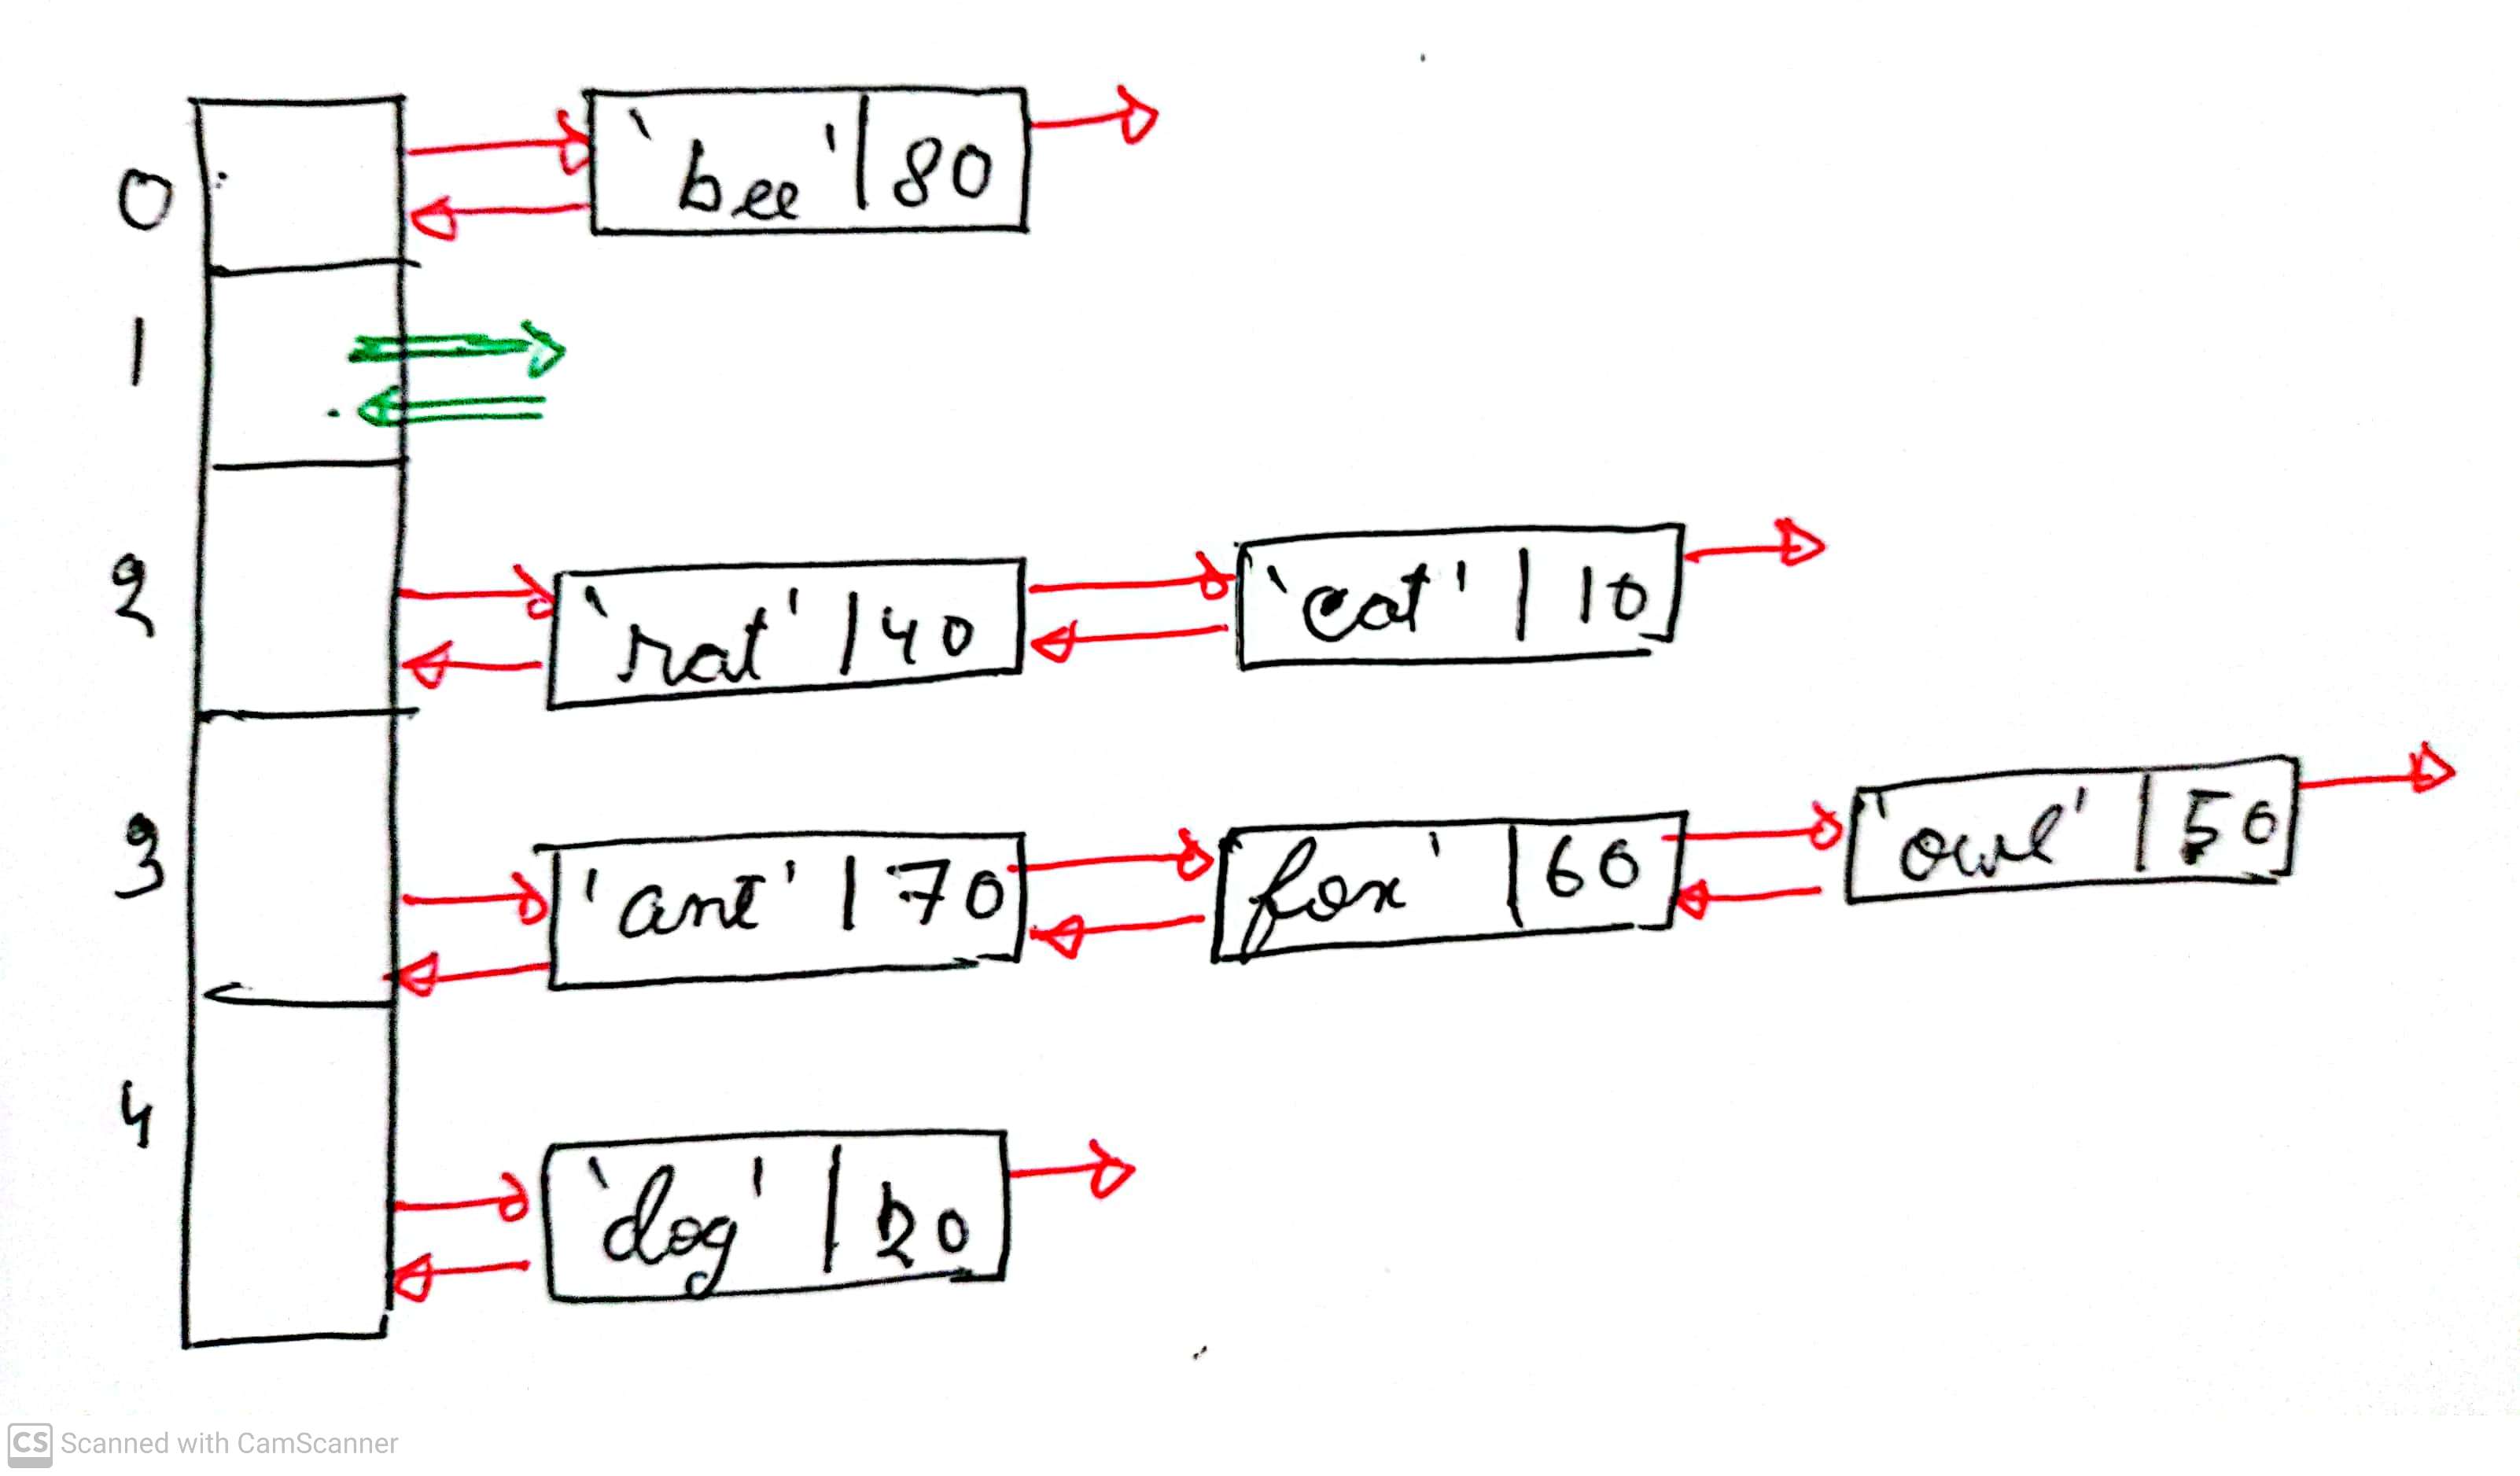 0 'bee' | 80
1
2 'rat' | 40 'cat' | 10
3 'ant' | 70 'fox' | 60 'owl' | 50
4 'dog' | 20
CS Scanned with CamScanner